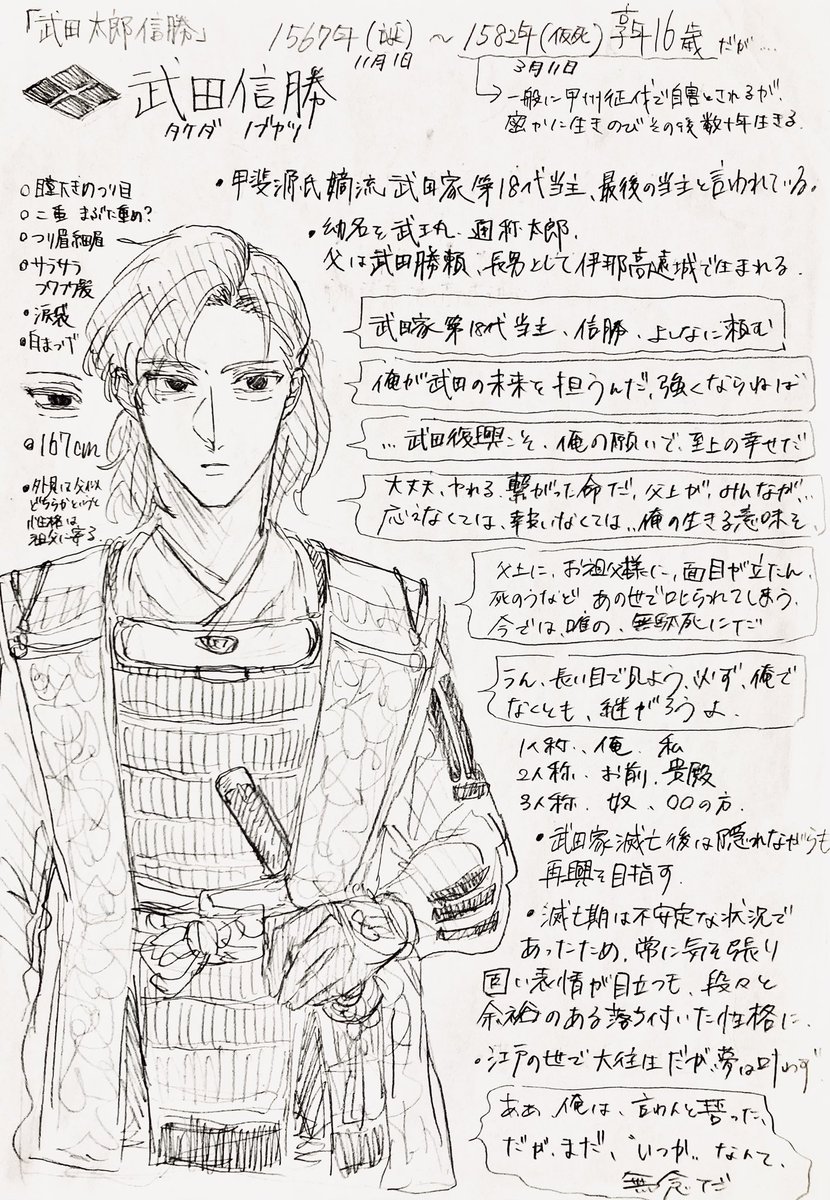 「武田太郎信勝」
1567年(誕)〜1582年(仮死)享年16歳だが…
11月1日
3月11日
武田信勝
タケダ ノブカツ
→一般に甲州征伐で自害とされるが、
密かに生きのびその後数十年生きる.
○瞳大きめつり目
○二重 まぶた重め?
○つり眉細眉
○サラサラ
フワフワ髪
•涙袋
•目まつげ
@167cm
•外見は父似
どちらかというと
性格は
祖父に寄る.
•甲斐源氏嫡流 武田家 第18代当主、最後の当主と言われている。
•幼名を武王丸. 通称太郎.
父は武田勝頼、長男として伊那高遠城で生まれる.
武田家第18代当主、信勝、よしなに頼む
俺が武田の未来を担うんだ、強くならねば
…武田復興こそ、俺の願いで、至上の幸せだ
大丈夫、やれる、繋がった命だ、父上が、みんなが…
応えなくては、報いなくては…俺の生きる意味を、
父上に、お祖父様に、面目が立たん.
死のうなど あの世で叱られてしまう.
今では、唯の、無駄死にだ
うん、長い目で見よう、必ず、俺で
なくとも、継がろうよ.
1人称、俺. 私
2人称、お前、貴殿
3人称. 奴、○○の方.
•武田家滅亡後は隠れながらも
再興を目指す.
•滅亡期は不安定な状況で
あったため、常に気を張り
固い表情が目立つも、段々と
余裕のある落ち付いた性格に.
•江戸の世で大往生だが、夢は叶わず
ああ、俺は、言わんと誓った、
だが、まだ、"いつか"なんて、
無念でだ